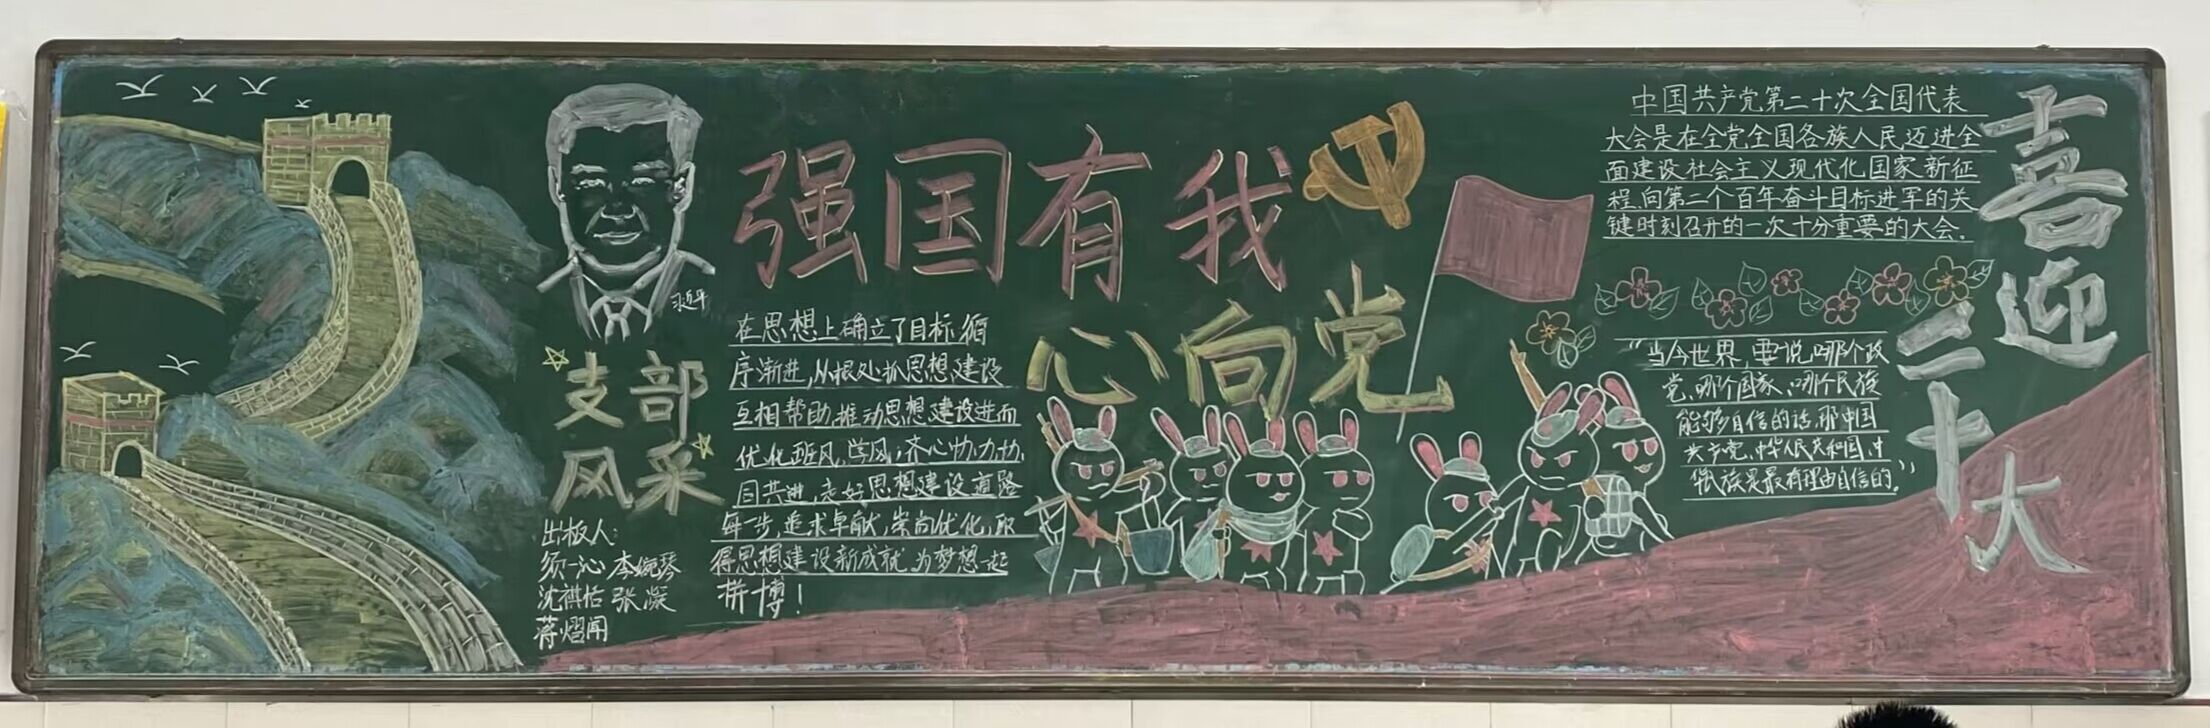 强国有我
心向党
习近平
支部
风采
出板人:
须一沁 李婉琴
沈祺恬 张凝
蒋熠闻
在思想上确立了目标,循
序渐进,从根处抓思想建设
互相帮助,推动思想建设进而
优化班风、学风;齐心协力,协
同共进,走好思想建设道路
每一步,追求卓献,崇尚优化,取
得思想建设新成就,为梦想一起
拼博!
中国共产党第二十次全国代表
大会是在全党全国各族人民迈进全
面建设社会主义现代化国家新征
程,向第二个百年奋斗目标进军的关
键时刻召开的一次十分重要的大会。
"当今世界,要说哪个政
党、哪个国家、哪个民族
能够自信的话,那中国
共产党、中华人民共和国、中
华民族是最有理由自信的。"
喜迎
二十大